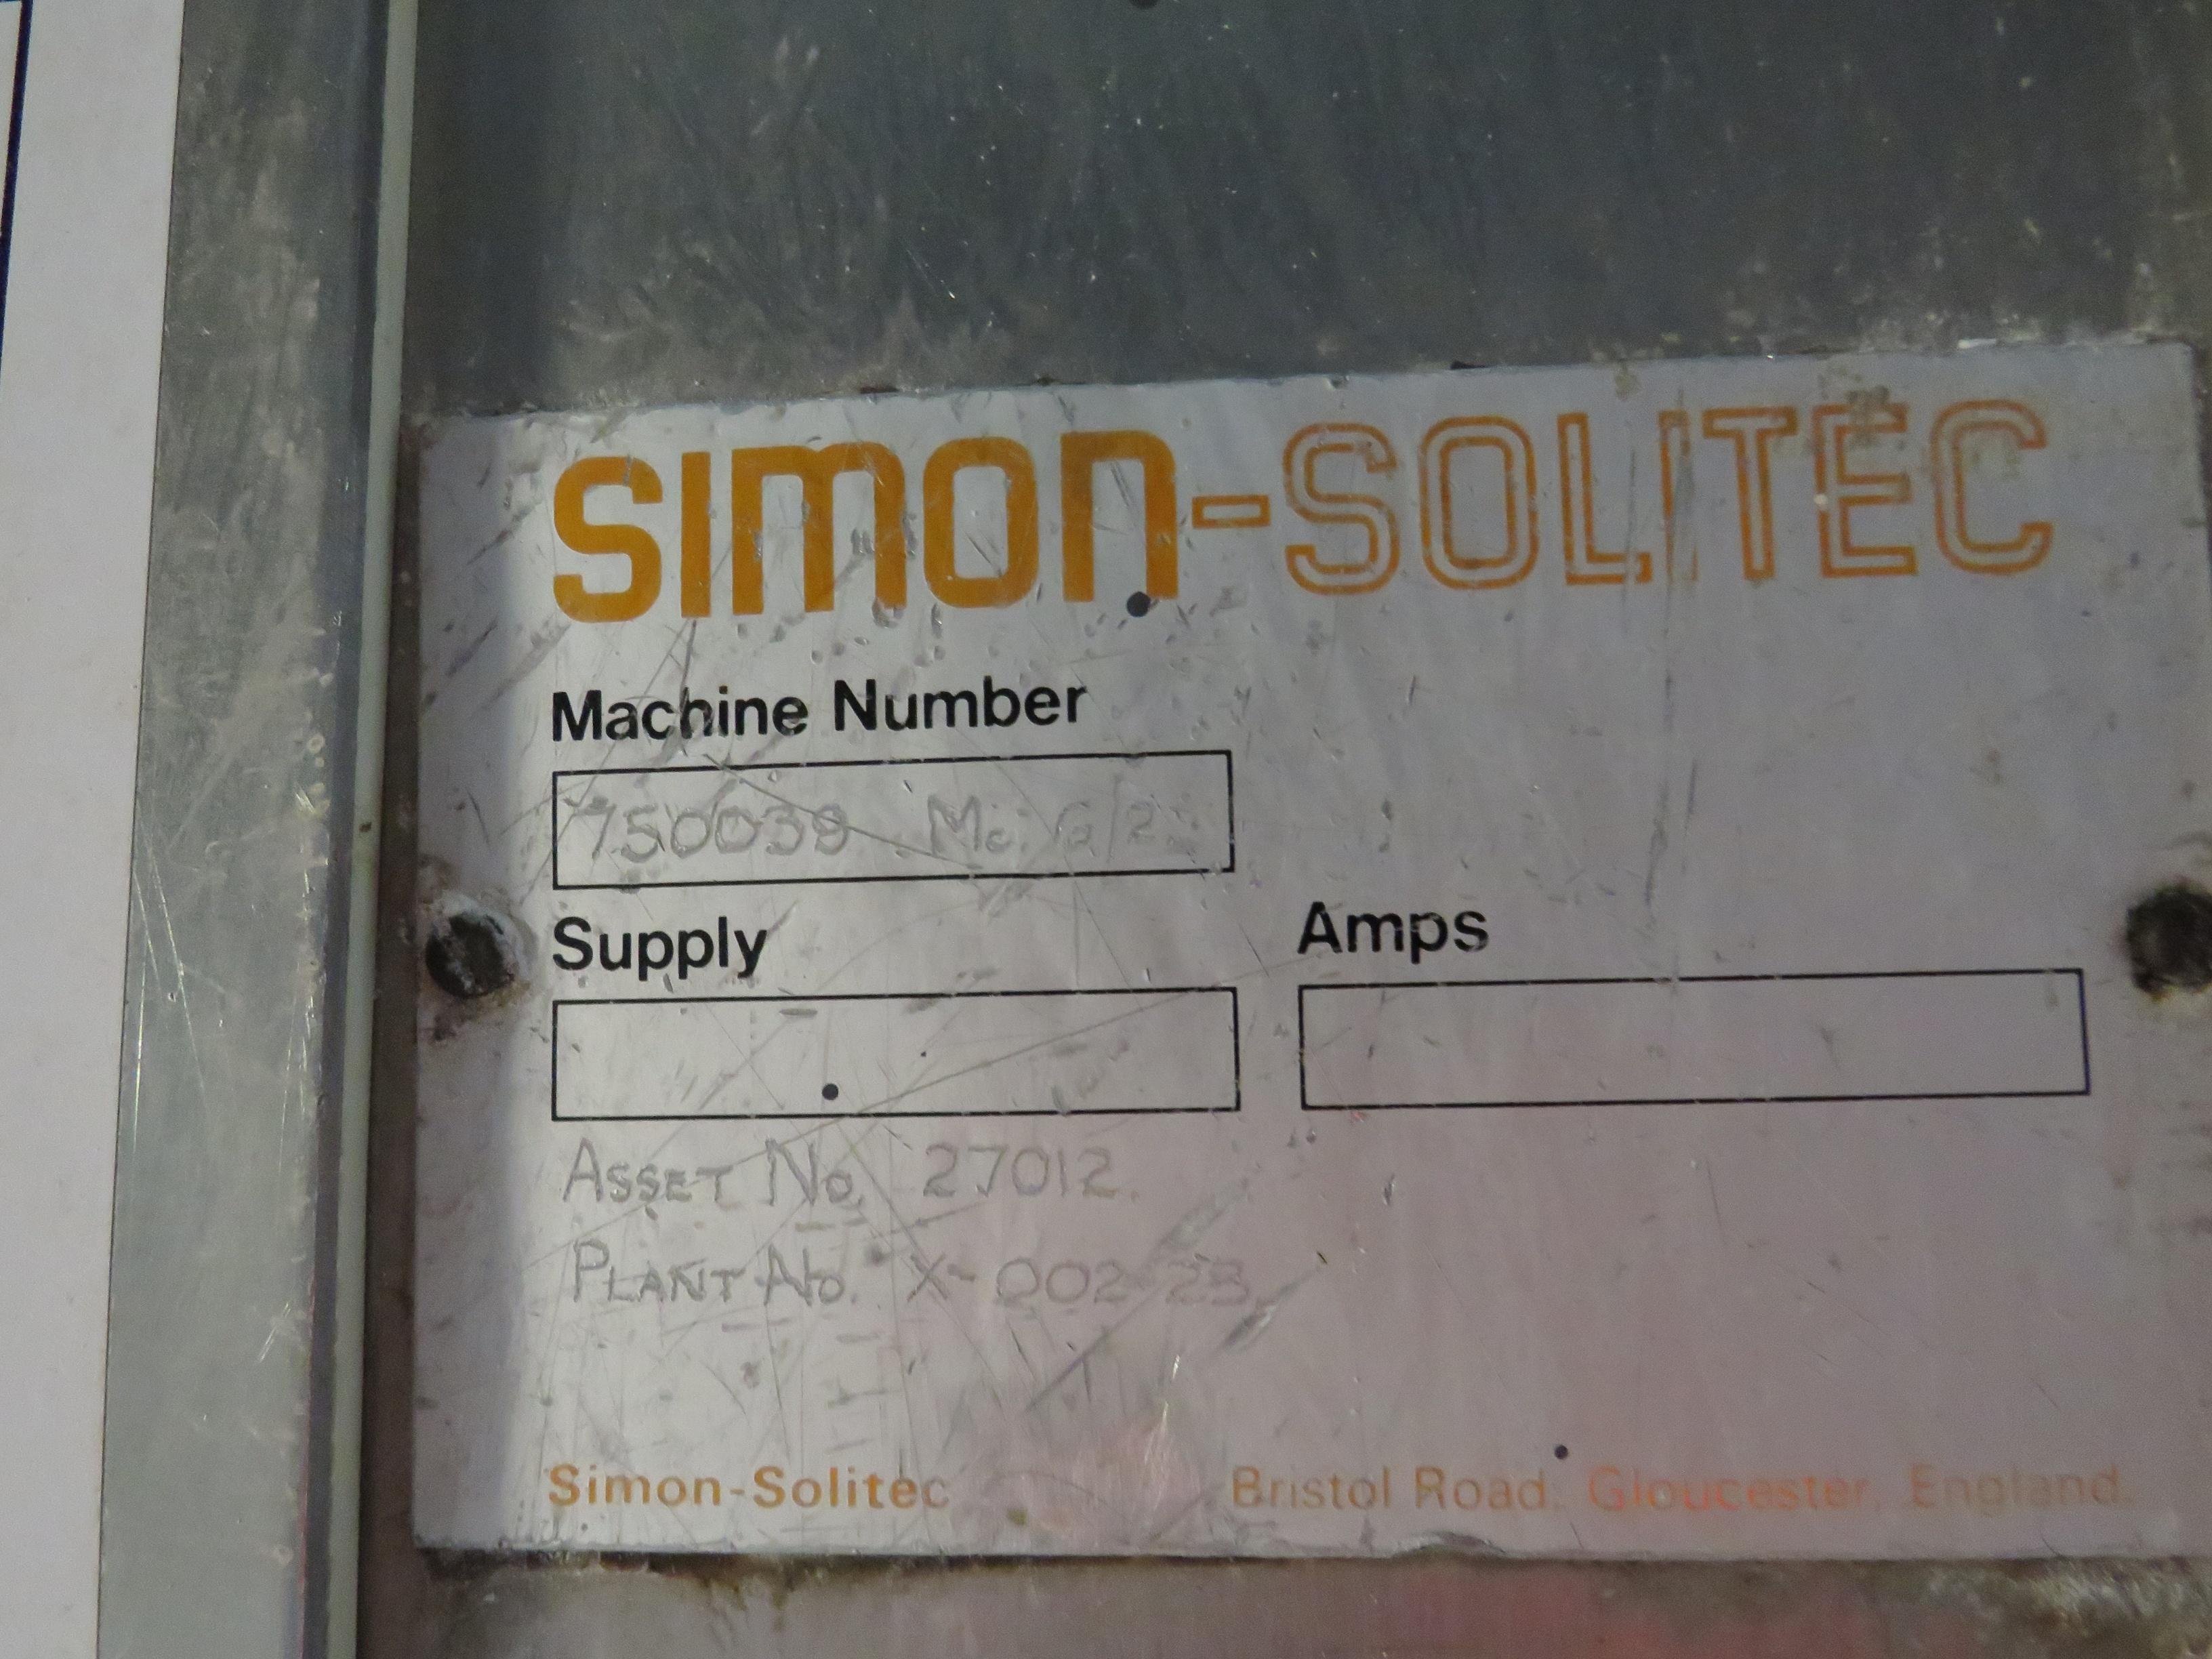 SIMON-SOLITEC
Machine Number
750039 Mc. G/2
Supply
Amps
ASSET No. 27012.
PLANT No. X-002-23
Simon-Solitec
Bristol Road, Gloucester, England.